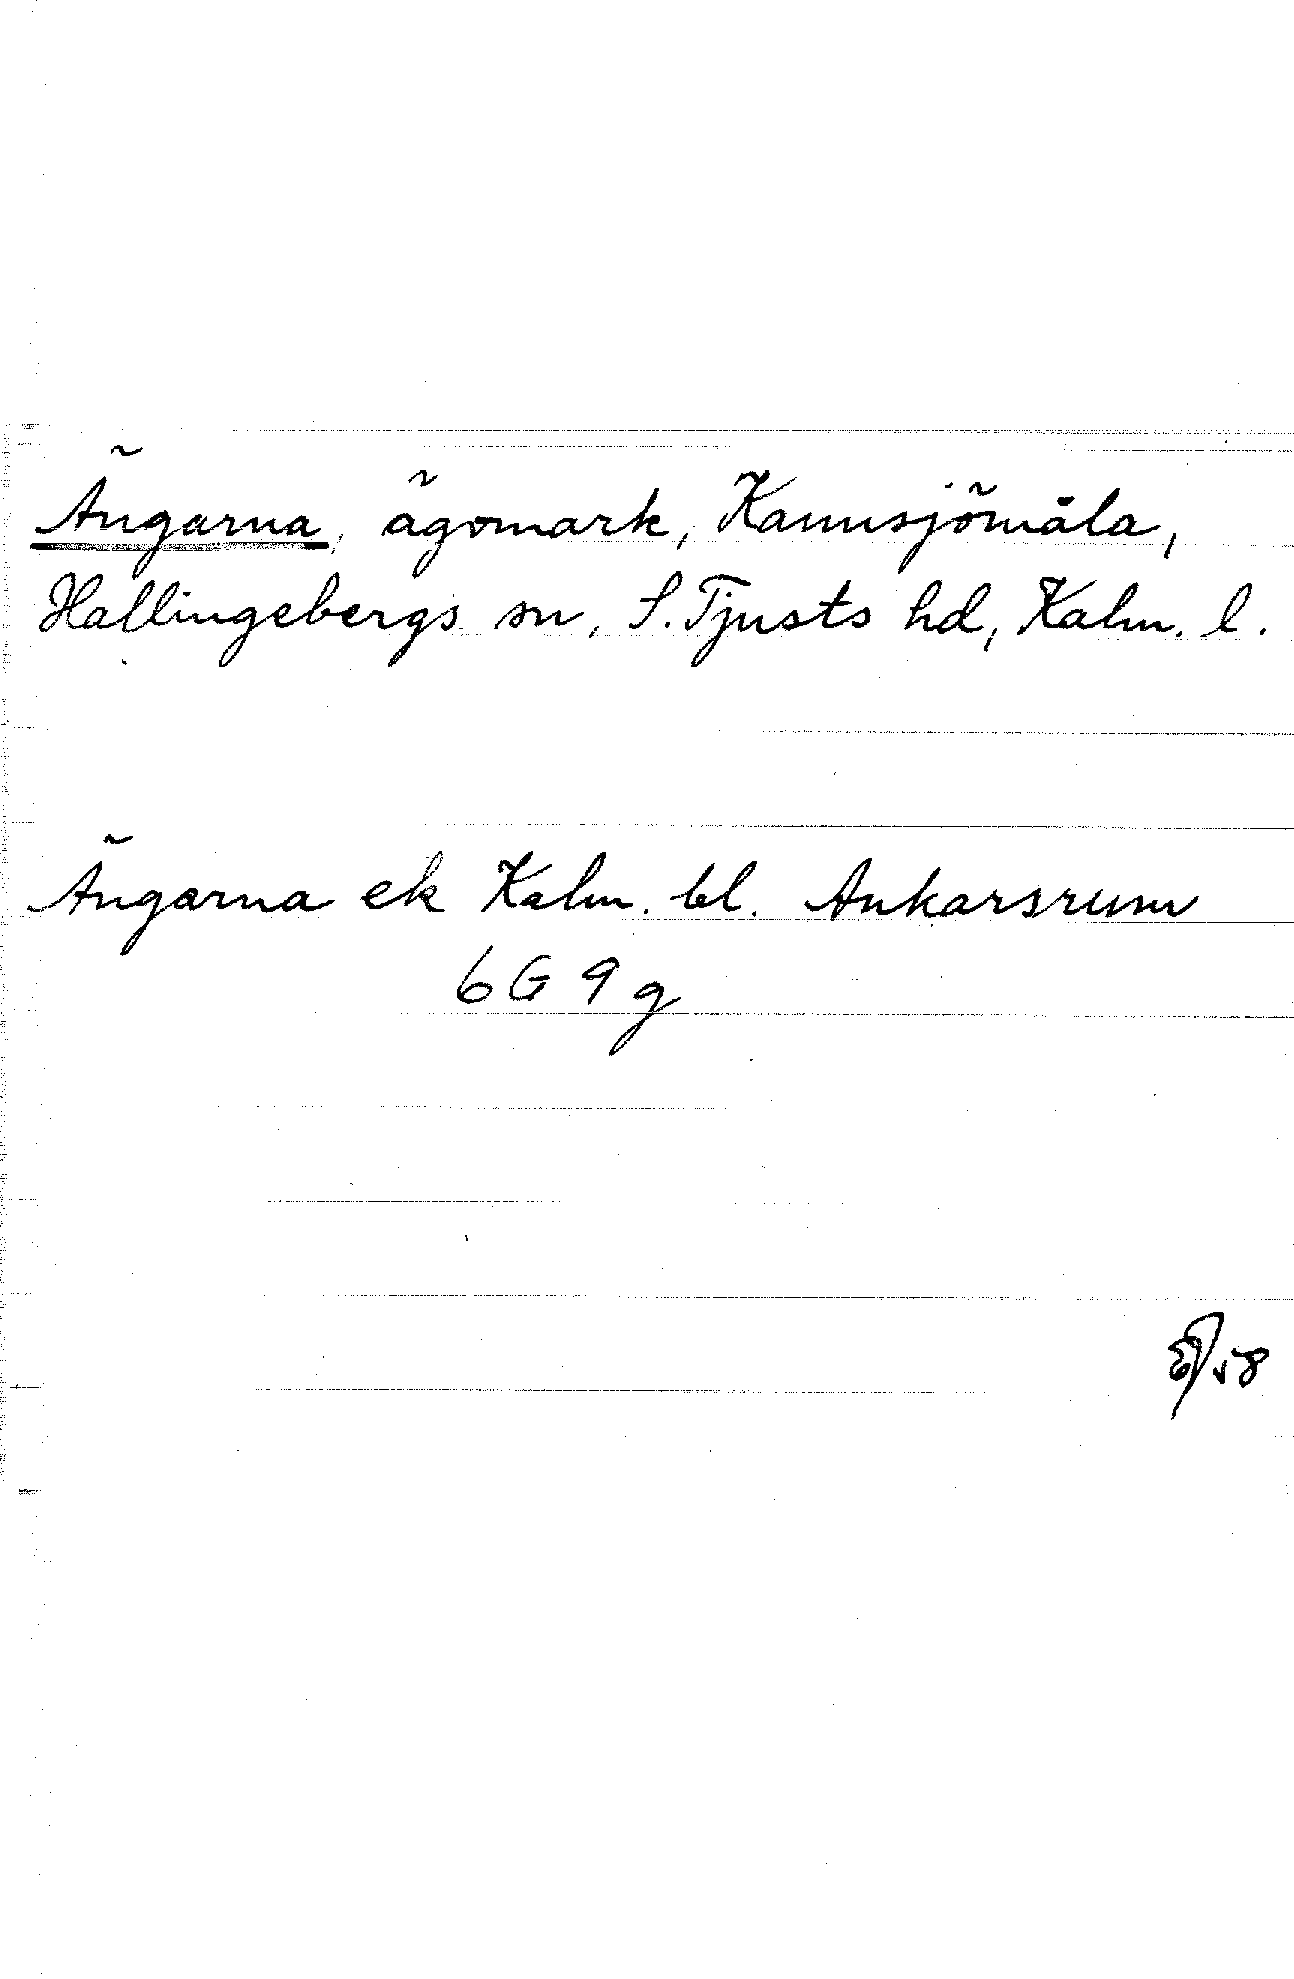 Ängarna, ägomark, Kannsjömåla,
Hallingebergs sn, S. Tjusts hd, Kalm. l.
Ängarna ek Kalm. bl. Ankarsrum
6G 9g
58